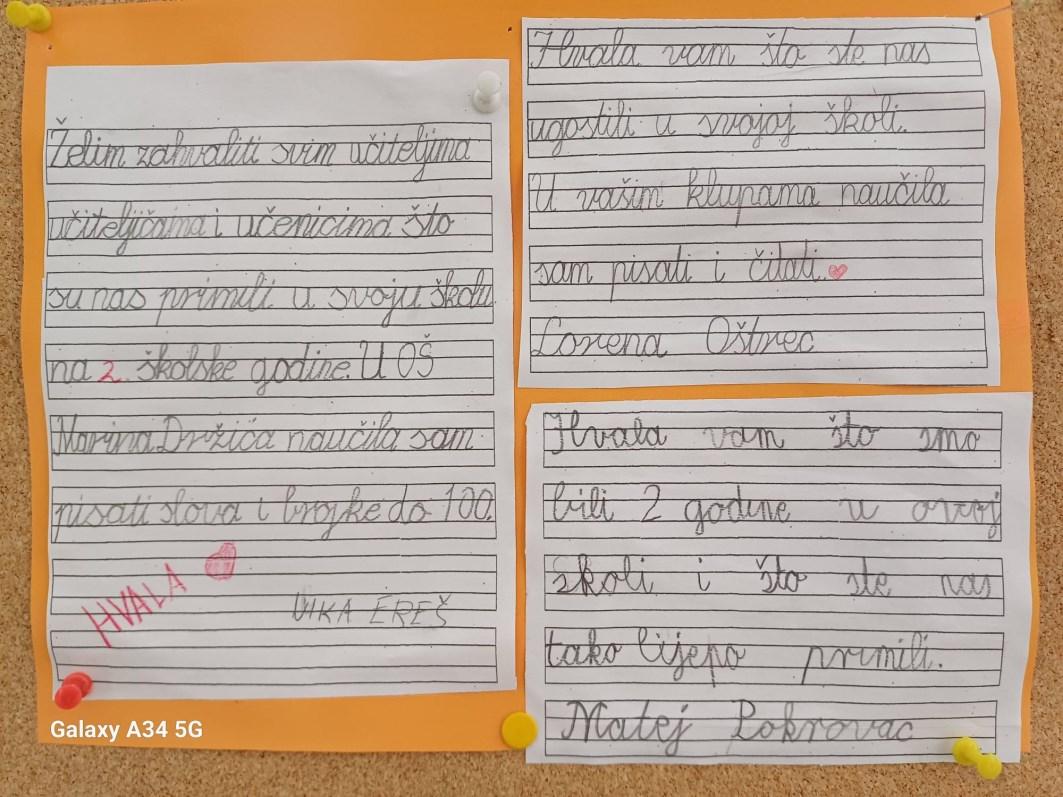 Želim zahvaliti svim učiteljima
učiteljicama i učenicima što
su nas primili u svoju školu
na 2. školske godine. U OŠ
Marina Držića naučila sam
pisati slova i brojke do 100.
HVALA
VIKA EREŠ
Hvala vam što ste nas
ugostili u svojoj školi.
U vašim klupama naučila
sam pisati i čitati.
Lorena Oštrec
Hvala vam što smo
bili 2 godine u ovoj
školi i što ste nas
tako lijepo primili.
Matej Pokrovac
Galaxy A34 5G